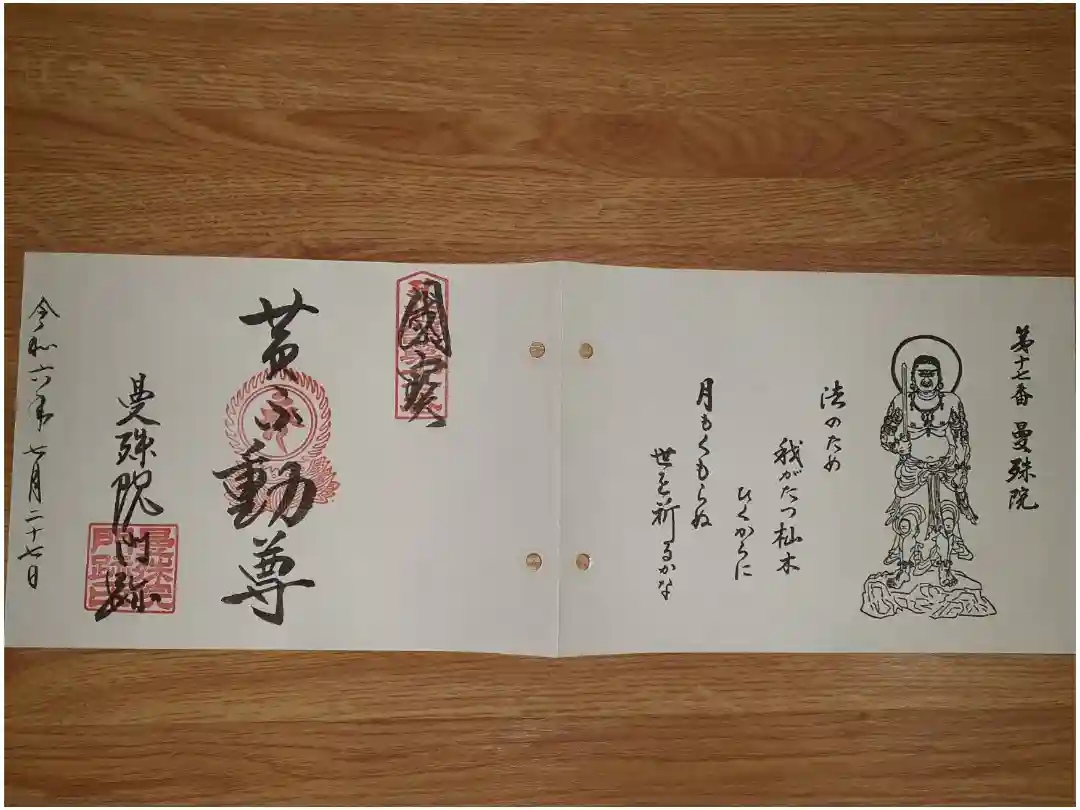 第十七番 曼殊院
法のため
我がたつ杣木
ひくからに
月もくもらぬ
世を祈るかな
黄不動尊
曼殊院門跡
曼殊院
門跡印
令和六年七月二十七日